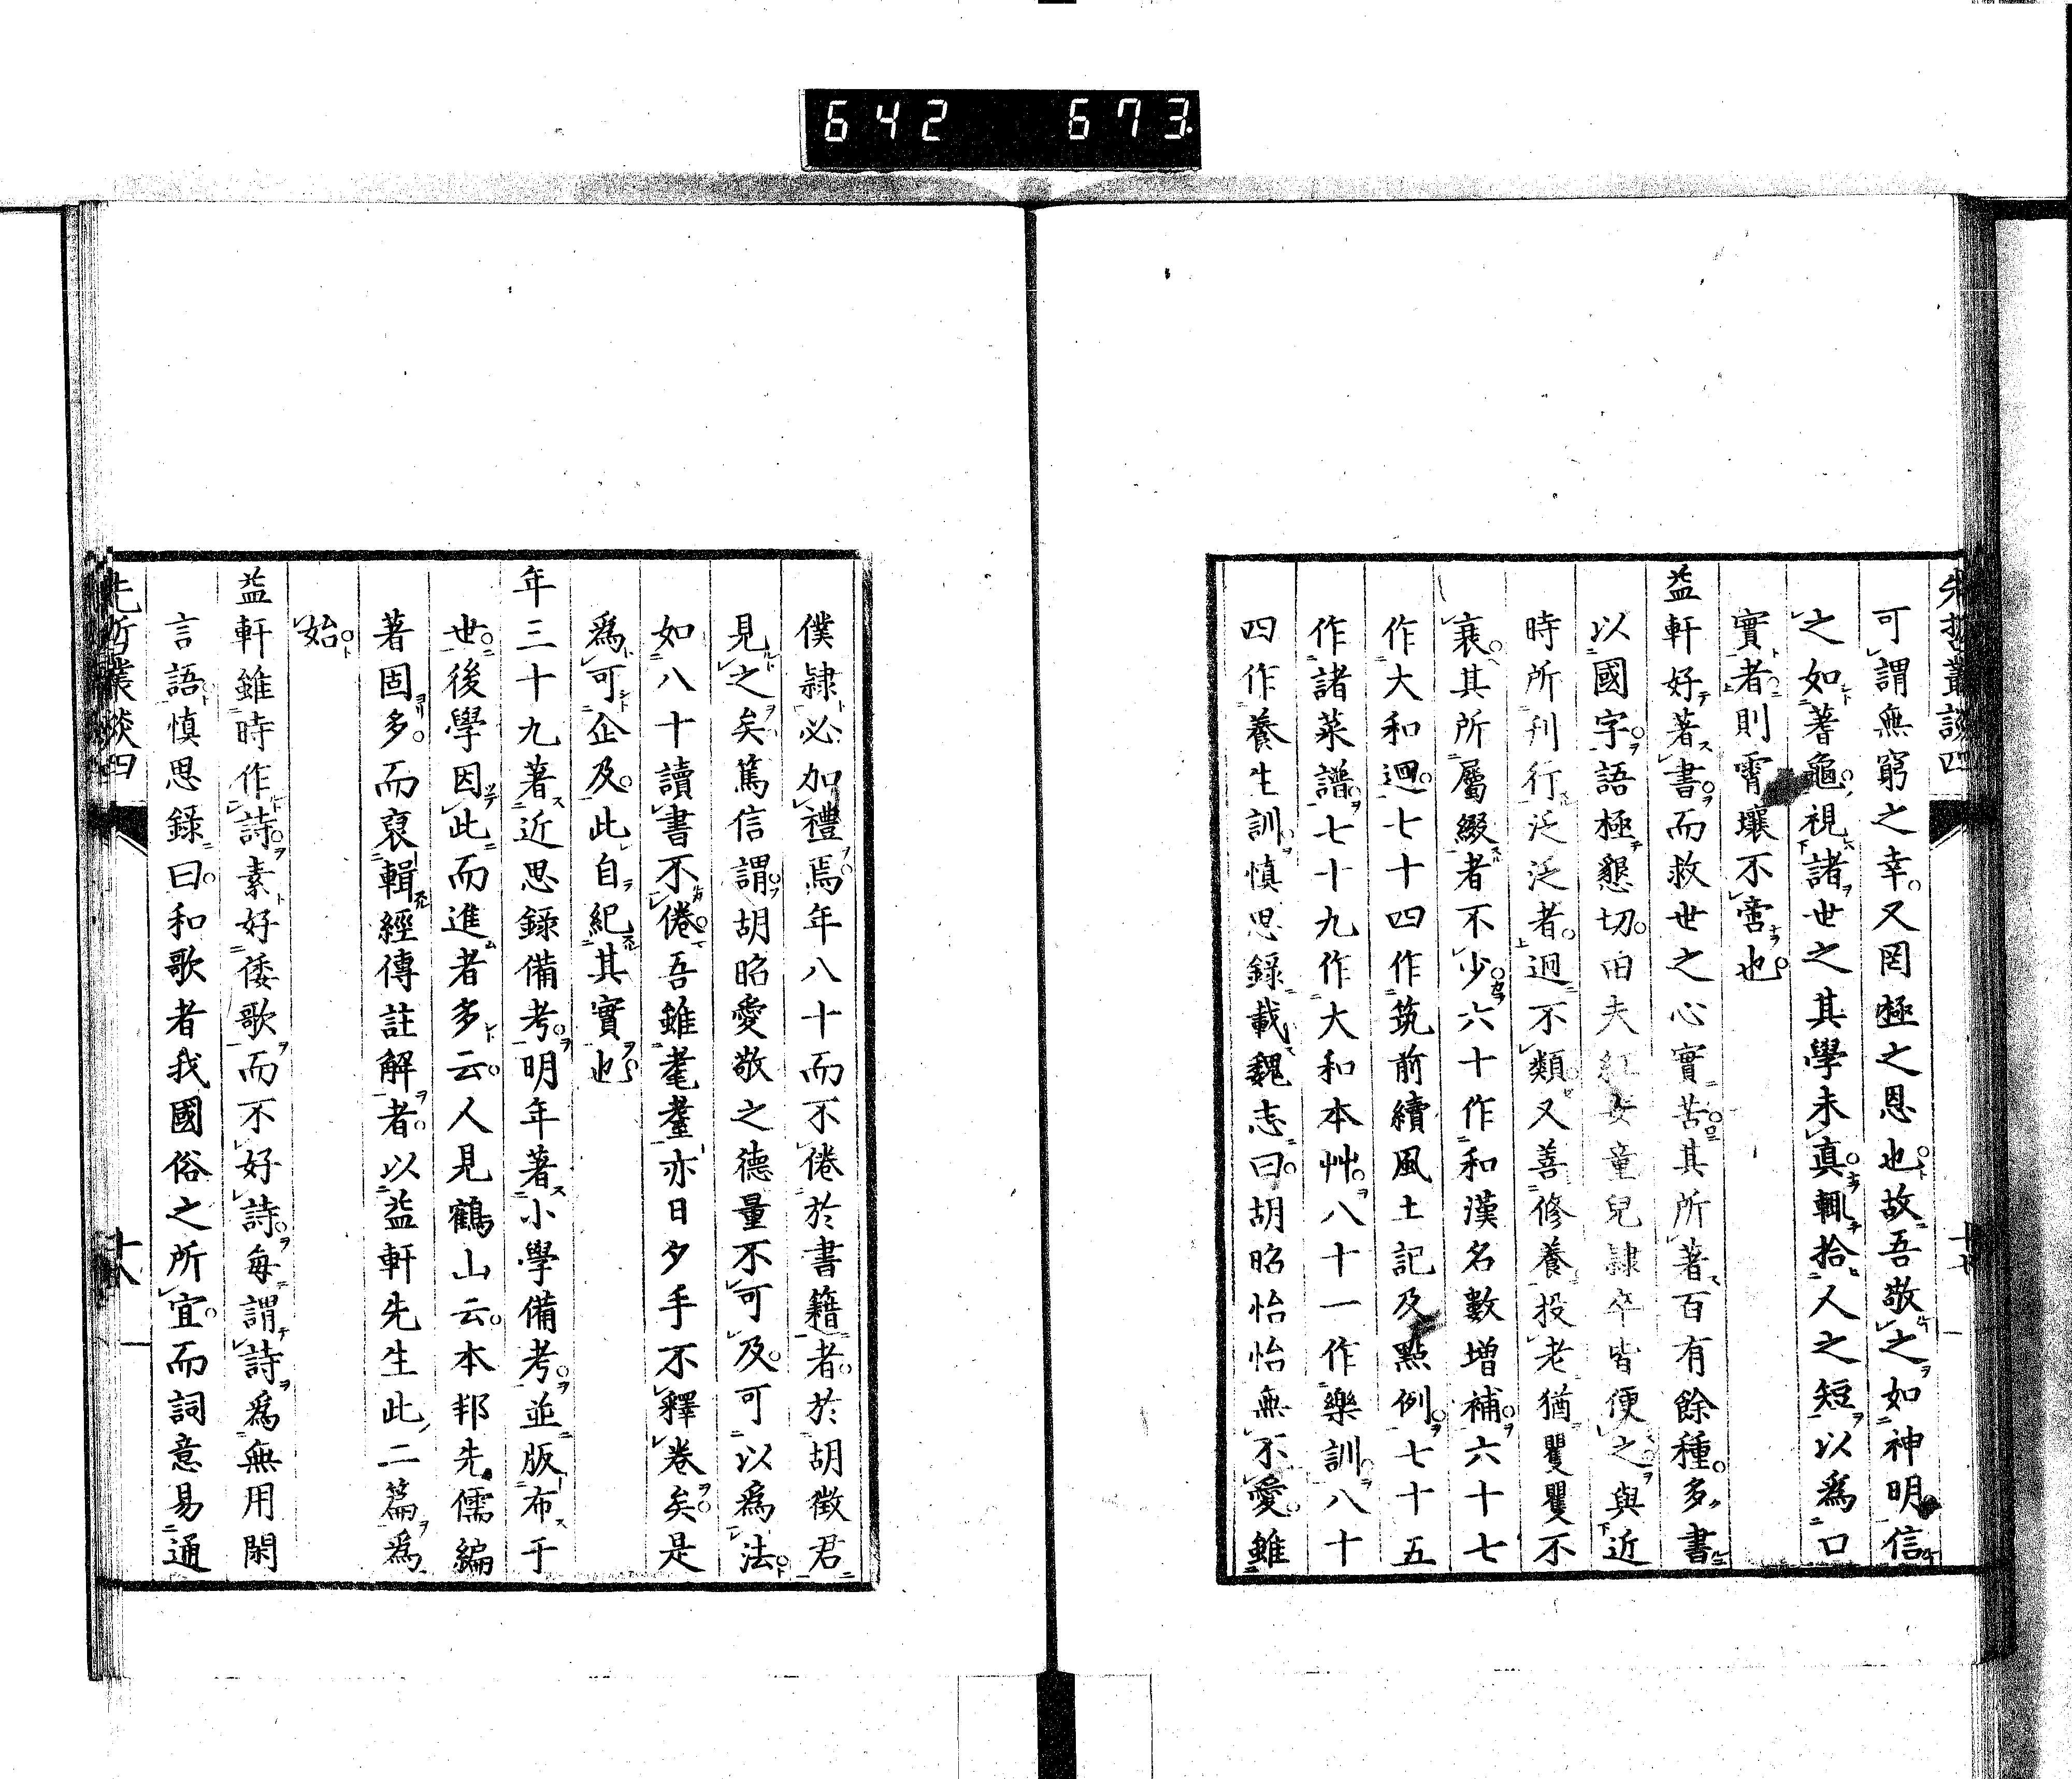 642 673
先哲叢談四
可謂無窮之幸又罔極之恩也故吾敬之如神明信
之如蓍龜視諸世之其學未真輒拾人之短以為口
實者則霄壤不啻也
益軒好著書而救世之心實苦其所著百有餘種多書
以國字語極懇切田夫紅女童兒隷卒皆便之與近
時所刋行泛泛者迥不類又善修養投老猶矍矍不
衰其所屬綴者不少六十作和漢名數增補六十七
作大和廻七十四作筑前續風土記及點例七十五
作諸菜譜七十九作大和本艸八十一作樂訓八十
四作養生訓慎思録載魏志曰胡昭怡怡無不愛雖
十七
僕隷必加禮焉年八十而不倦於書籍者於胡徵君
見之矣篤信謂胡昭愛敬之德量不可及可以為法
如八十讀書不倦吾雖耄耋亦日夕手不釋卷矣是
為可企及此自紀其實也
年三十九著近思録備考明年著小學備考並版布于
世後學因此而進者多云人見鶴山云本邦先儒編
著固多而裒輯經傳註解者以益軒先生此二篇為
始
益軒雖時作詩素好倭歌而不好詩每謂詩為無用閑
言語慎思録曰和歌者我國俗之所宜而詞意易通
先哲叢談四
十八